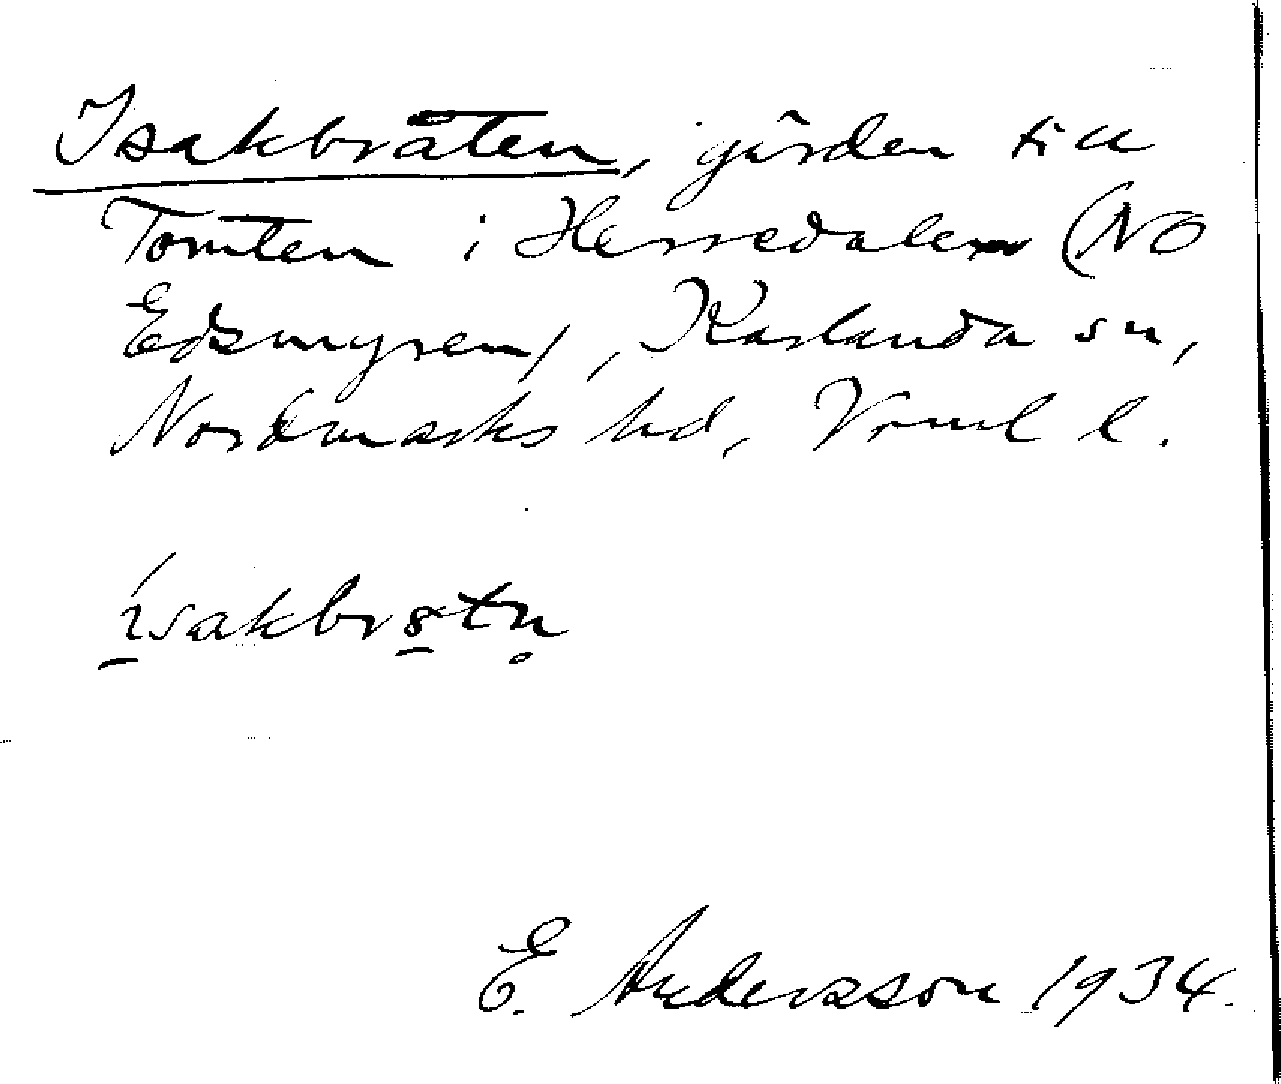 Isakbråten, gärden till
Tomten i Herredalen (NO
Edsmyren), Karlanda sn,
Nordmarks hd, Vrml l.
ísakbrotn̥
E. Andersson 1934.